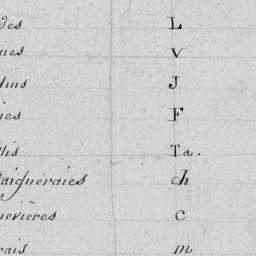 des L
ues V
dins J
ies F
llis Ta.
taigneraies ch
nevières C
rais m